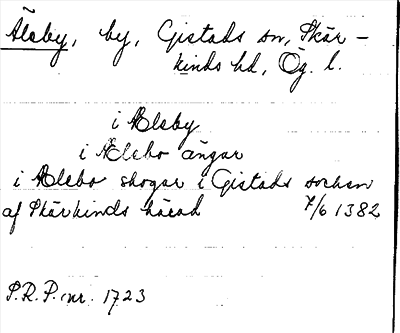 Älsby, by, Gistads sn, Skär-
kinds hd, Ög. l.
i Ælsby
i Ælsbo ängar
i Ælsbo skogar i Gistads sochen
af Skärkinds härad 7/6 1382
S.R.P. nr. 1723